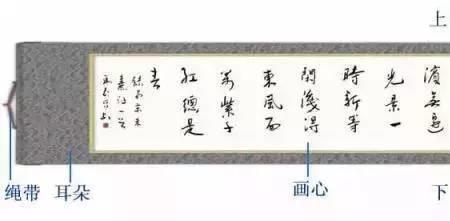 上
濱無邊
光景一
時新等
閒識得
東風面
萬紫千
紅總是
春
绳带
耳朵
画心
下